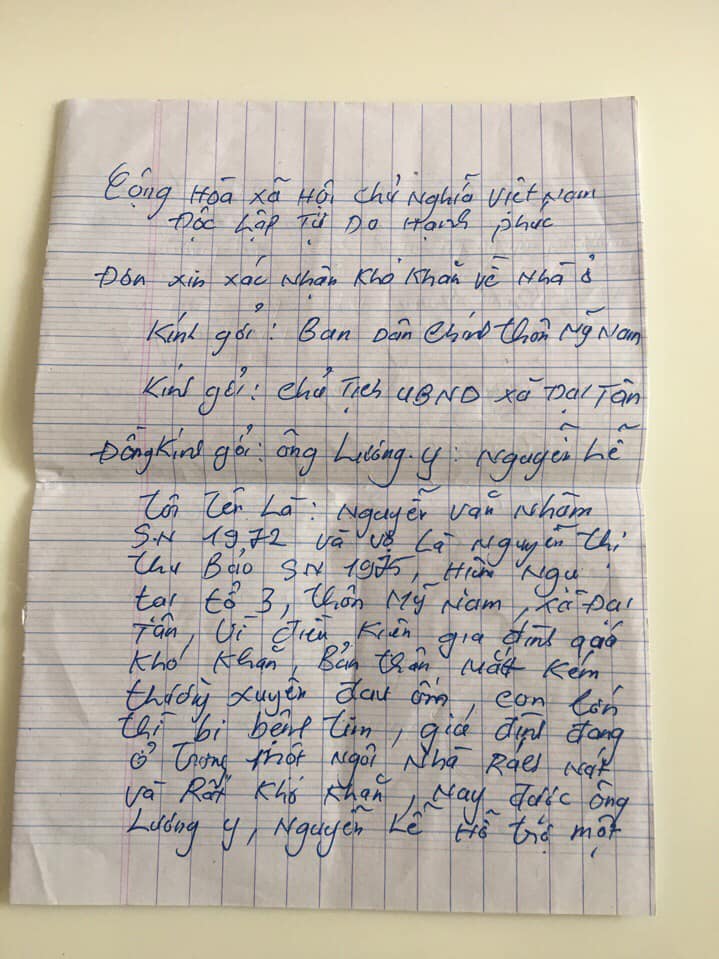 Cộng Hòa Xã Hội Chủ Nghĩa Việt Nam
Độc Lập Tự Do Hạnh phúc
Đơn xin xác Nhận Khó Khăn về Nhà ở
Kính gởi : Ban Dân Chính thôn Mỹ Nam
Kính gởi : Chủ Tịch UBND xã Đại Tân
Đồng Kính gởi : ông Lương . y : Nguyễn Lễ
Tôi Tên Là : Nguyễn Văn Nhâm
S.N 1972 và vợ Là Nguyễn Thị
Thu Bảo S.N 1975, Hiện Ngụ
tại tổ 3, thôn Mỹ Nam, xã Đại
Tân, Vì điều Kiện gia đình quá
Khó Khăn, Bản thân Mắt Kém
thường xuyên đau ốm, con lớn
thì bị bệnh tim, gia đình đang
ở trong một ngôi Nhà Rách Nát
và Rất Khó Khăn, Nay được ông
Lương y, Nguyễn Lễ Hỗ trợ một